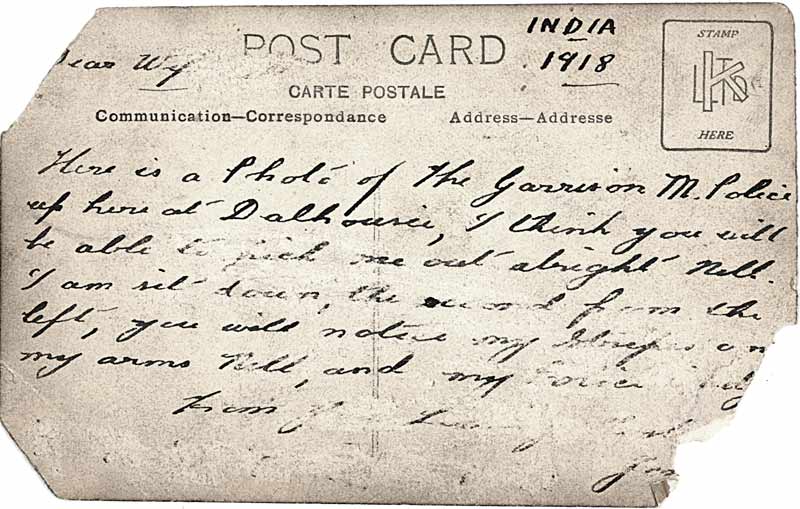 INDIA
1918
POST CARD
CARTE POSTALE
Communication—Correspondance
Address—Addresse
STAMP
HERE
Dear
Here is a Photo of the Garrison M. Police
up here at Dalhousie, I think you will
be able to pick me out alright Nell.
I am sit down, the second from the
left, you will notice my stripes on
my arms Nell, and my
from